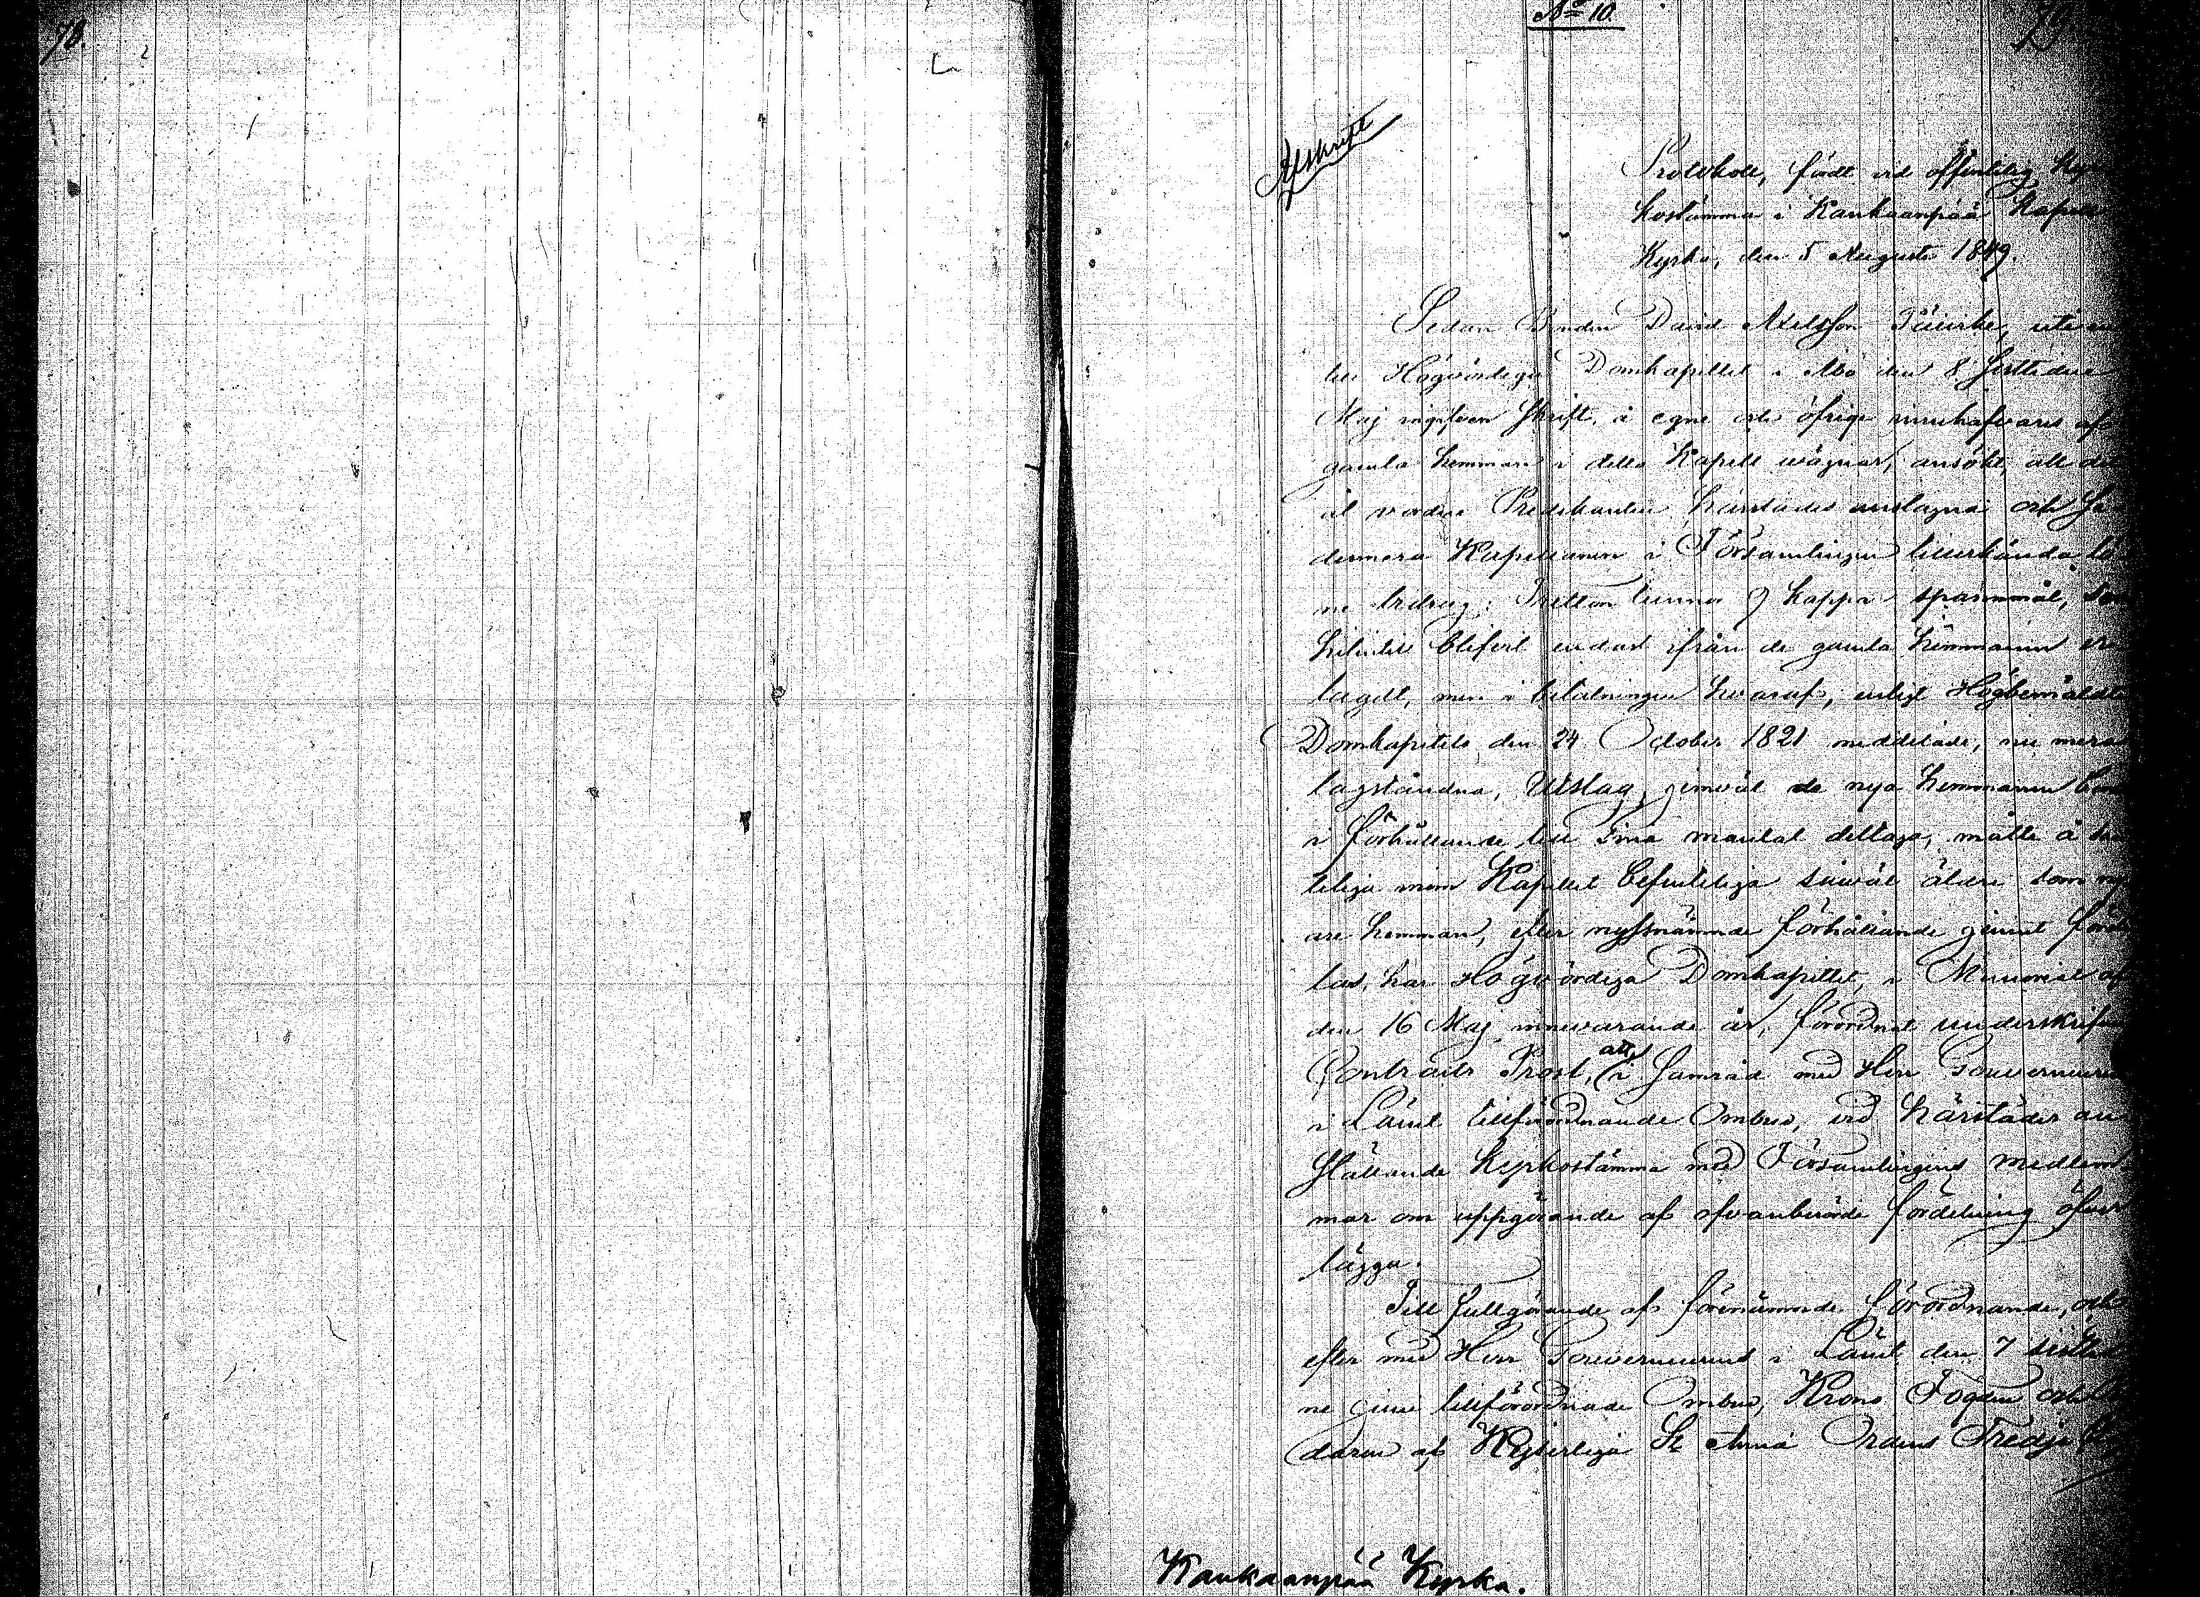 78.
No 10.
79
Afskrift
Protokoll, fördt vid offentelig Kyr
kostämma i Kankaanpää Kapell
Kyrka, den 5 Augusti 1849.
Sedan Bonden David Axelsson uti en
till Högvördiga Domkapitlet i Åbo den 8 sistlidne
Maj ingifven skrift, å egne och öfrige innehafvares af
gamla hemman i detta Kapell wägnar, ansökt, att det
åt vordne Predikanten härstädes anslagna och se
dermera Kapellanen i Församlingen tillerkända lö
ne bidrag: Tretton tunnor 9 kappar spannmål, som
hitintills blifvit endast ifrån de gamla hemmanen er
lagdt, men i betalningen hwaraf, enligt Högbemälde
Domkapitels den 24 October 1821 meddelade, nu mera
lagståndna, Utslag, jemväl de nya hemmanen böra
i förhållande till sina mantal deltaga, måtte å sam
teliga inom Kapellet befinteliga såwäl äldre som ny
are hemman, efter nyssnämnde förhållande jemnt förde
las, har Högvördiga Domkapitlet, i Memorial af
den 16 Maj innevarande år, förordnat underskrifven
Contracts Prost, att i samråd med Herr Gouverneurens
i Länet tillförordnande Ombud, vid härstädes an
ställande Kyrkostämma med Församlingens medlem
mar om uppgörande af ofvanberörde fördelning öfver
lägga.
Till fullgörande af förenämnde förordnande, och
efter med Herr Gouverneurens i Länet den 7 sistlid
ne Junii tillförordnade Ombud, Krono Fogden och
daren af Kejserliga St Anna Ordens Tredje
Kankaanpää Kyrka.